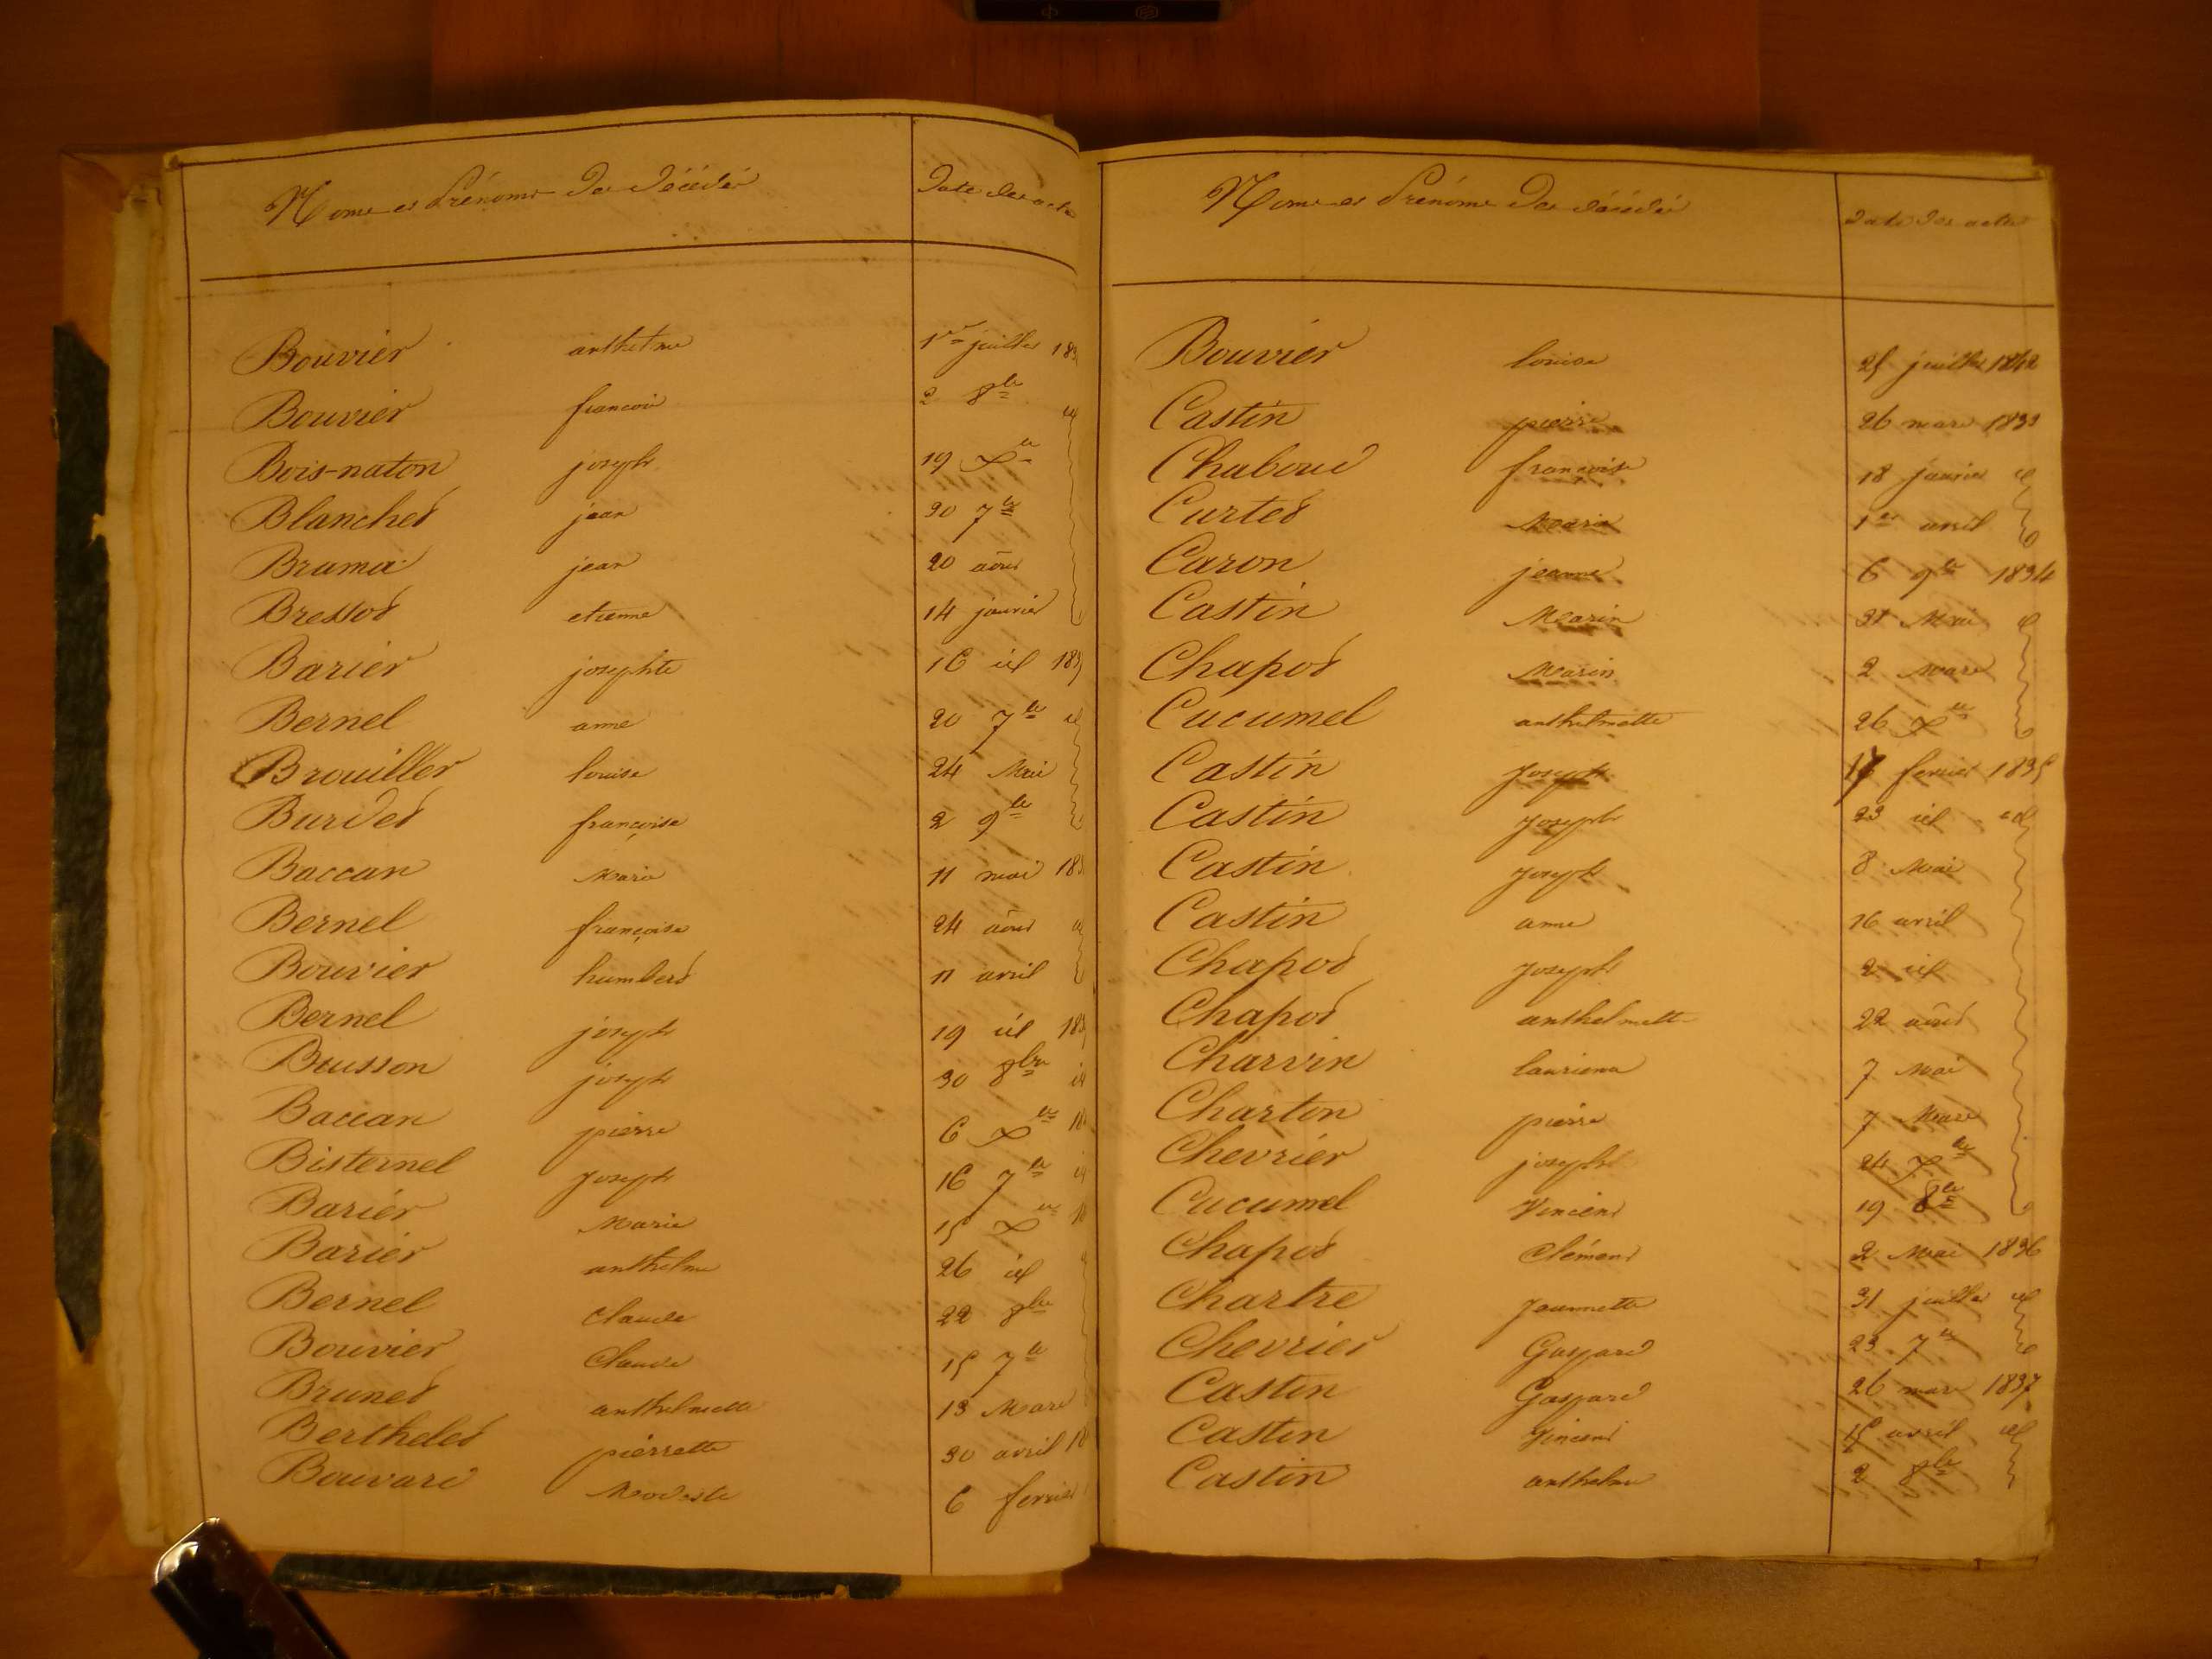 Noms et Prénoms des décédés Date des actes
Bouvier anthelme 1er juillet 183
Bouvier francois 2 8bre id
Bois-naton joseph 19 Xbre
Blanchet jean 30 7bre
Brama jean 20 aôut
Bressot etienne 14 janvier
Barier josephte 16 id 183
Bernel anne 20 7bre id
Brouiller louise 24 Mai
Burdet françoise 2 9bre
Baccan Marie 11 mai 183
Bernel françoise 24 aôut id
Bouvier humbert 11 avril
Bernel joseph 19 id 183
Busson joseph 30 8bre id
Baccan pierre 6 Xbre 18
Bisternel Joseph 16 7bre id
Barier Marie 15 Xbre 18
Barier anthelme 26 id
Bernel Claude 22 8bre
Bouvier Claude 15 7bre
Brunet anthelmette 13 Mars
Berthelet pierrette 30 avril 18
Bouvard Modeste 6 fevrier
Noms et Prénoms des décédés Date des actes
Bouvier louise 25 juillet 1842
Castin pierre 26 mars 1833
Chaboud françoise 18 janvier id
Curtet Marie 1er avril
Caron jeanne 6 9bre 1834
Castin Marin 31 Mai id
Chapot Marin 2 Mars
Cucumel anthelmette 26 Xbre
Castin Joseph 17 fevrier 1835
Castin Joseph 23 id id
Castin Joseph 8 Mai
Castin anne 16 avril
Chapot Joseph 2 id
Chapot anthelmette 22 aôut
Charvin 7 Mai
Charton pierre 7 Mars
Chevrier joseph 24 Xbre
Cucumel Vincent 19 8bre
Chapot Clément 2 Mai 1836
Chartre Jeannette 31 juillet id
Chevrier Gaspard 23 7bre
Castin Gaspard 26 mars 1837
Castin Vincent 15 avril id
Castin anthelme 2 8bre